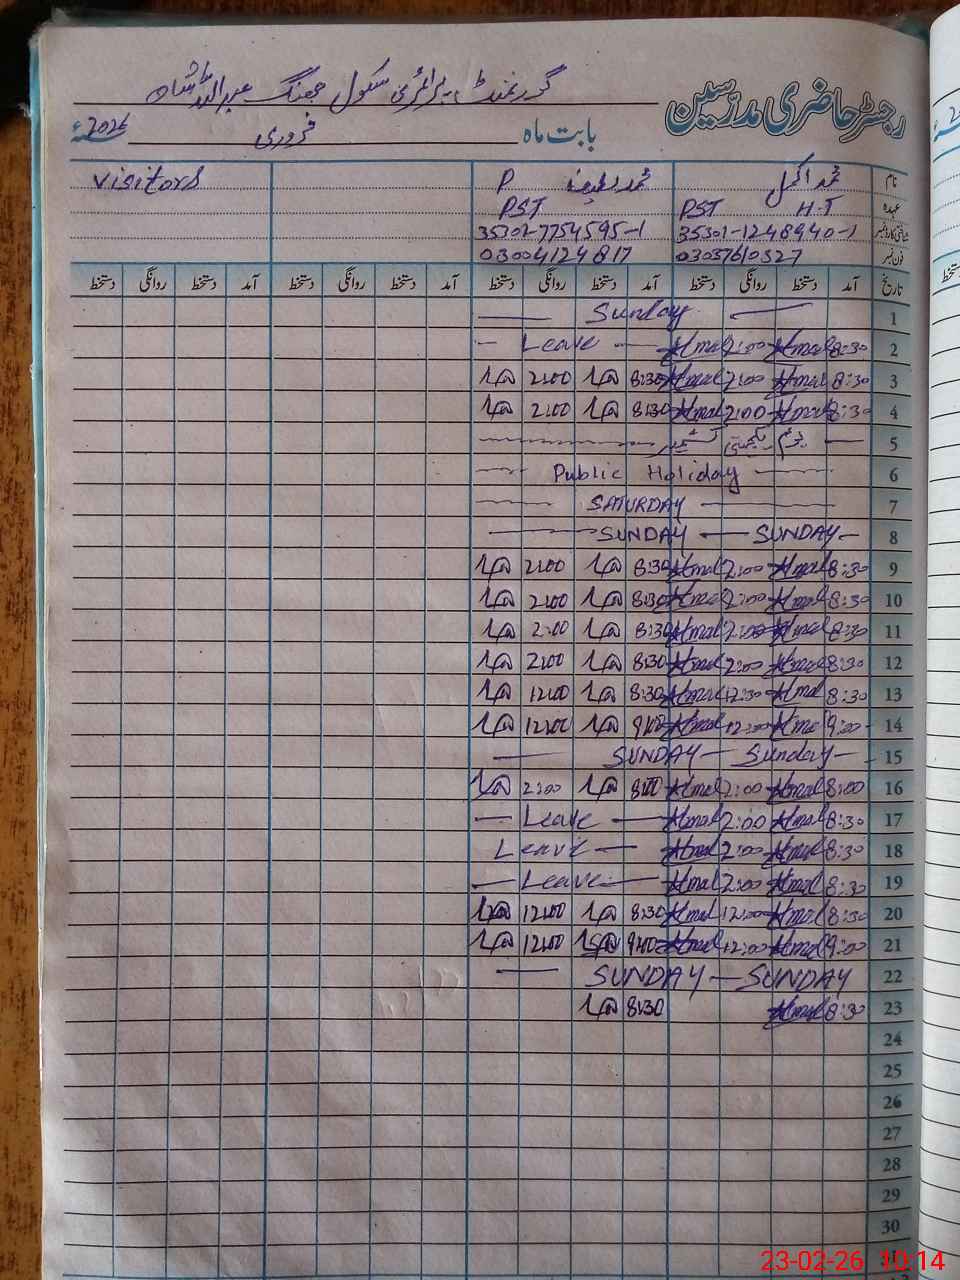 رجسٹر حاضری مدرسین
گورنمنٹ پرائمری سکول جھنگ عبداللہ شاہ
بابت ماہ فروری 2026ء
نام محمد اکمل محمد لطیف P visitors
عہدہ H.T PST PST
شناختی کارڈ نمبر 35301-1248940-1 35302-7754595-1
فون نمبر 03037610327 03004124817
تاریخ آمد دستخط روانگی دستخط آمد دستخط روانگی دستخط آمد دستخط روانگی دستخط آمد دستخط روانگی دستخط
1 Sunday
2 8:30 Akmal 2:00 Akmal Leave
3 8:30 Akmal 2:00 Akmal 8:30 2:00
4 8:30 Akmal 2:00 Akmal 8:30 2:00
5 یوم یکجہتی کشمیر
6 Public Holiday
7 SATURDAY
8 SUNDAY SUNDAY
9 8:30 Akmal 2:00 Akmal 8:30 2:00
10 8:30 Akmal 2:00 Akmal 8:30 2:00
11 8:30 Akmal 2:00 Akmal 8:30 2:00
12 8:30 Akmal 2:00 Akmal 8:30 2:00
13 8:30 Akmal 12:30 Akmal 8:30 12:00
14 9:00 Akmal 12:00 Akmal 9:00 12:00
15 Sunday SUNDAY
16 8:00 Akmal 2:00 Akmal 8:00 2:00
17 8:30 Akmal 2:00 Akmal Leave
18 8:30 Akmal 2:00 Akmal Leave
19 8:30 Akmal 2:00 Akmal Leave
20 8:30 Akmal 12:00 Akmal 8:30 12:00
21 9:00 Akmal 12:00 Akmal 9:00 12:00
22 SUNDAY SUNDAY
23 8:30 Akmal 8:30
24
25
26
27
28
29
30
23-02-26 10:14